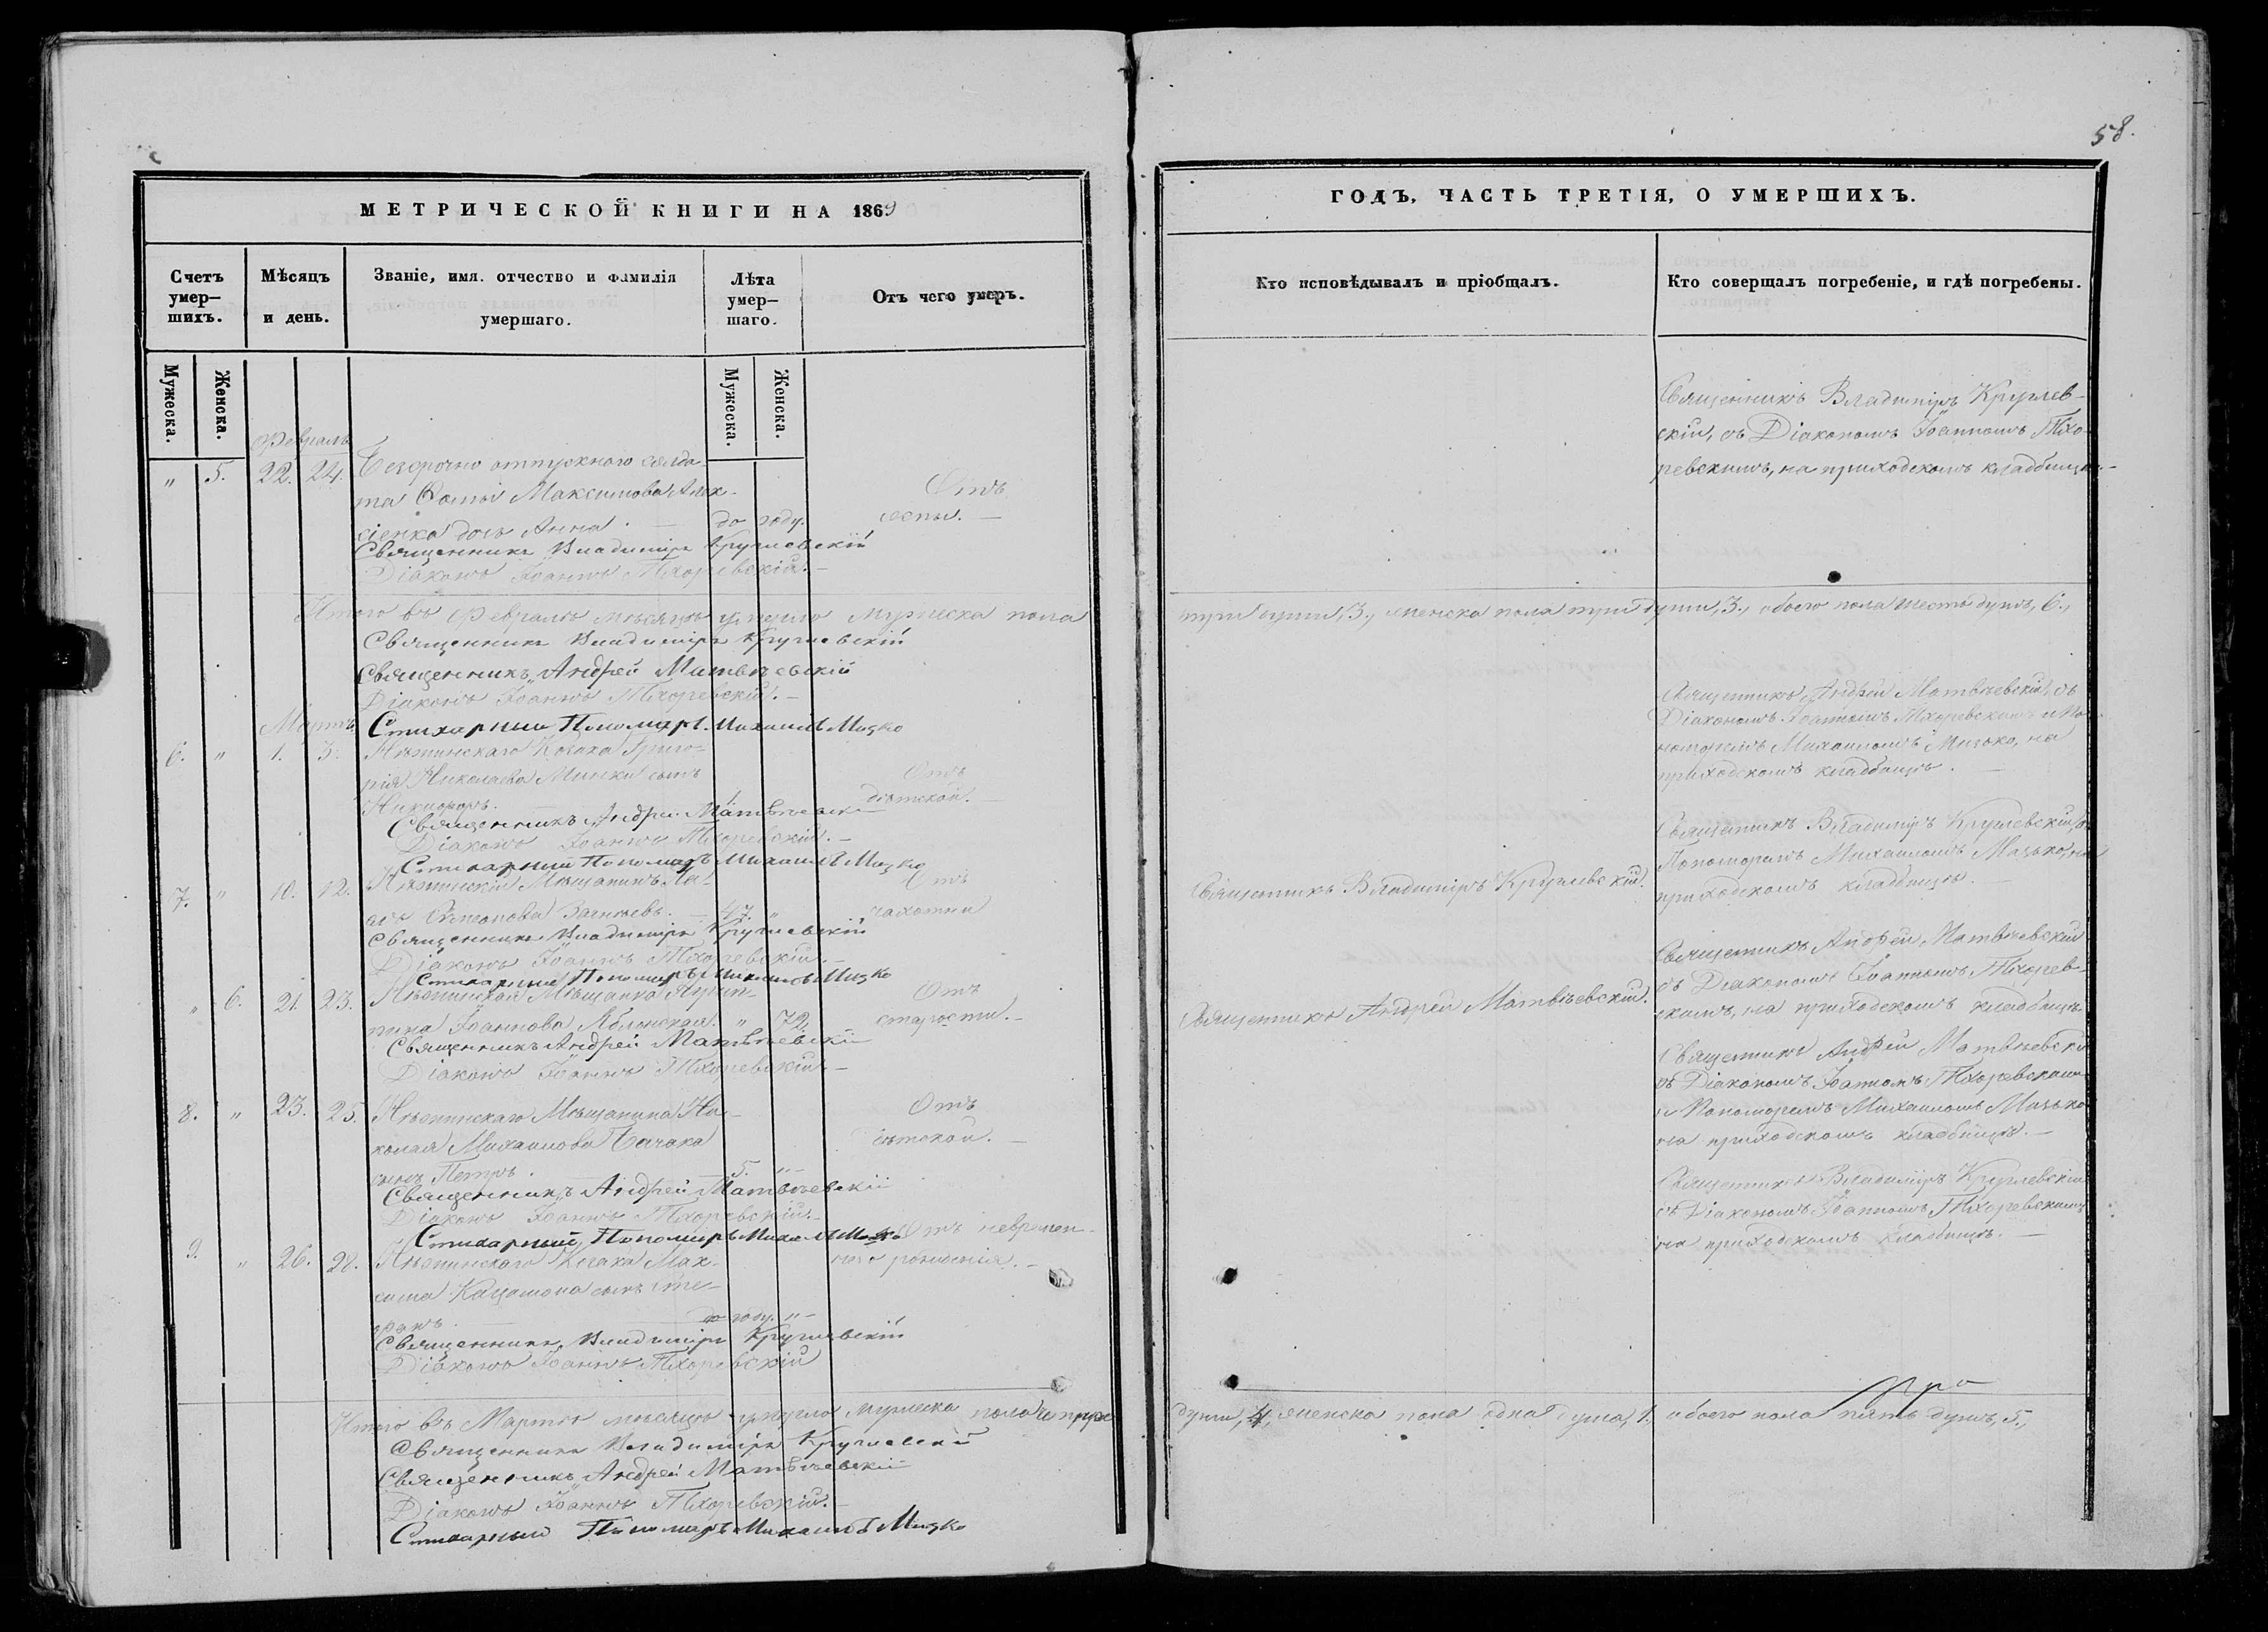 58.
МЕТРИЧЕСКОЙ КНИГИ НА 1869
Счетъ умер-шихъ.
Мѣсяцъ и день.
Званіе, имя. отчество и фамилія умершаго.
Лѣта умер-шаго.
Отъ чего умеръ.
Мужеска.
Женска.
Мужеска.
Женска.
Февраль
" 5. 22. 24. Безсрочно отпускного солда-
та Максимова Алек- Отъ
сіенка дочь Анна. — до году. оспы. —
Священникъ Владиміръ Круглевскій
Діаконъ Іоаннъ Тхоревскій. —
Итого въ Февралѣ мѣсяцѣ умерло мужеска пола
Священникъ Владиміръ Круглевскій
Священникъ Андрей Матвѣевскій
Діаконъ Іоаннъ Тхоревскій. —
Мартъ
Стихарный Пономарь Михаилъ Мизко
6. " 1. 3. Нѣжинскаго Козака Григо-
рія Николаева сынъ Отъ
Никифоръ. 1 дѣтской. —
Священникъ Андрей Матвѣевскі
Діаконъ Іоаннъ Тхоревскій. —
Стихарный Пономарь Михаилъ Мизко
7. " 10. 12. Нѣжинскій Мѣщанинъ Отъ
— 47. " чахотки
Священникъ Владиміръ Круглевскій
Діаконъ Іоаннъ Тхоревскій. —
Стихарный Пономарь Михаилъ Мизко
" 6. 21. 23. Нѣжинская Мѣщанка Отъ
Іоаннова Яблонская. " 72. старости. —
Священникъ Андрей Матвѣевскі
Діаконъ Іоаннъ Тхоревскій —
8. " 23. 25. Нѣжинскаго Мѣщанина Ни- Отъ
колая Михаилова дѣтской. —
сынъ Петръ. — 5. " —
Священникъ Андрей Матвѣевскій
Діаконъ Іоаннъ Тхоревскій. —
Стихарный Пономарь Михаилъ Мизко Отъ невремен-
9. " 26. 28. Нѣжинскаго Козака Мак- наго рожденія. —
сима сынъ Сте-
фанъ. — до году. " —
Священникъ Владиміръ Круглевскій
Діаконъ Іоаннъ Тхоревскій
Итого въ Мартѣ мѣсяцѣ умерло мужеска пола четыре
Священникъ Владиміръ Круглевскій
Священникъ Андрей Матвѣевскій
Діаконъ Іоаннъ Тхоревскій. —
Стихарный Пономарь Михаилъ Мизко
ГОДЪ, ЧАСТЬ ТРЕТІЯ, О УМЕРШИХЪ.
Кто исповѣдывалъ и пріобщалъ.
Кто совершалъ погребеніе, и гдѣ погребены.
Священникъ Владиміръ Круглев-
скій, съ Діакономъ Іоанномъ Тхо-
ревскимъ, на приходскомъ кладбищѣ. —
три души, 3., женска пола три души, 3., обоего пола шесть душъ, 6.,
Священникъ Андрей Матвѣевскій, съ
Діакономъ Іоанномъ Тхоревскимъ и По-
номаремъ Михаиломъ Мизько, на
приходскомъ кладбищѣ. —
Священникъ Владиміръ Круглевскій, съ
Пономаремъ Михаиломъ Мизько, на
Священникъ Владиміръ Круглевскій.
приходскомъ кладбищѣ. —
Священникъ Андрей Матвѣевскій
съ Діакономъ Іоанномъ Тхорев-
Священникъ Андрей Матвѣевскій.
скимъ, на приходскомъ кладбищѣ
Священникъ Андрей Матвѣевскі
съ Діакономъ Іоанномъ Тхоревскимъ
и Пономаремъ Михаиломъ Мизько
на приходскомъ кладбищѣ. —
Священникъ Владиміръ Круглевскій
съ Діакономъ Іоанномъ Тхоревскимъ
на приходскомъ кладбищѣ. —
души, 4, женска пола одна душа, 1., обоего пола пять душъ, 5.,